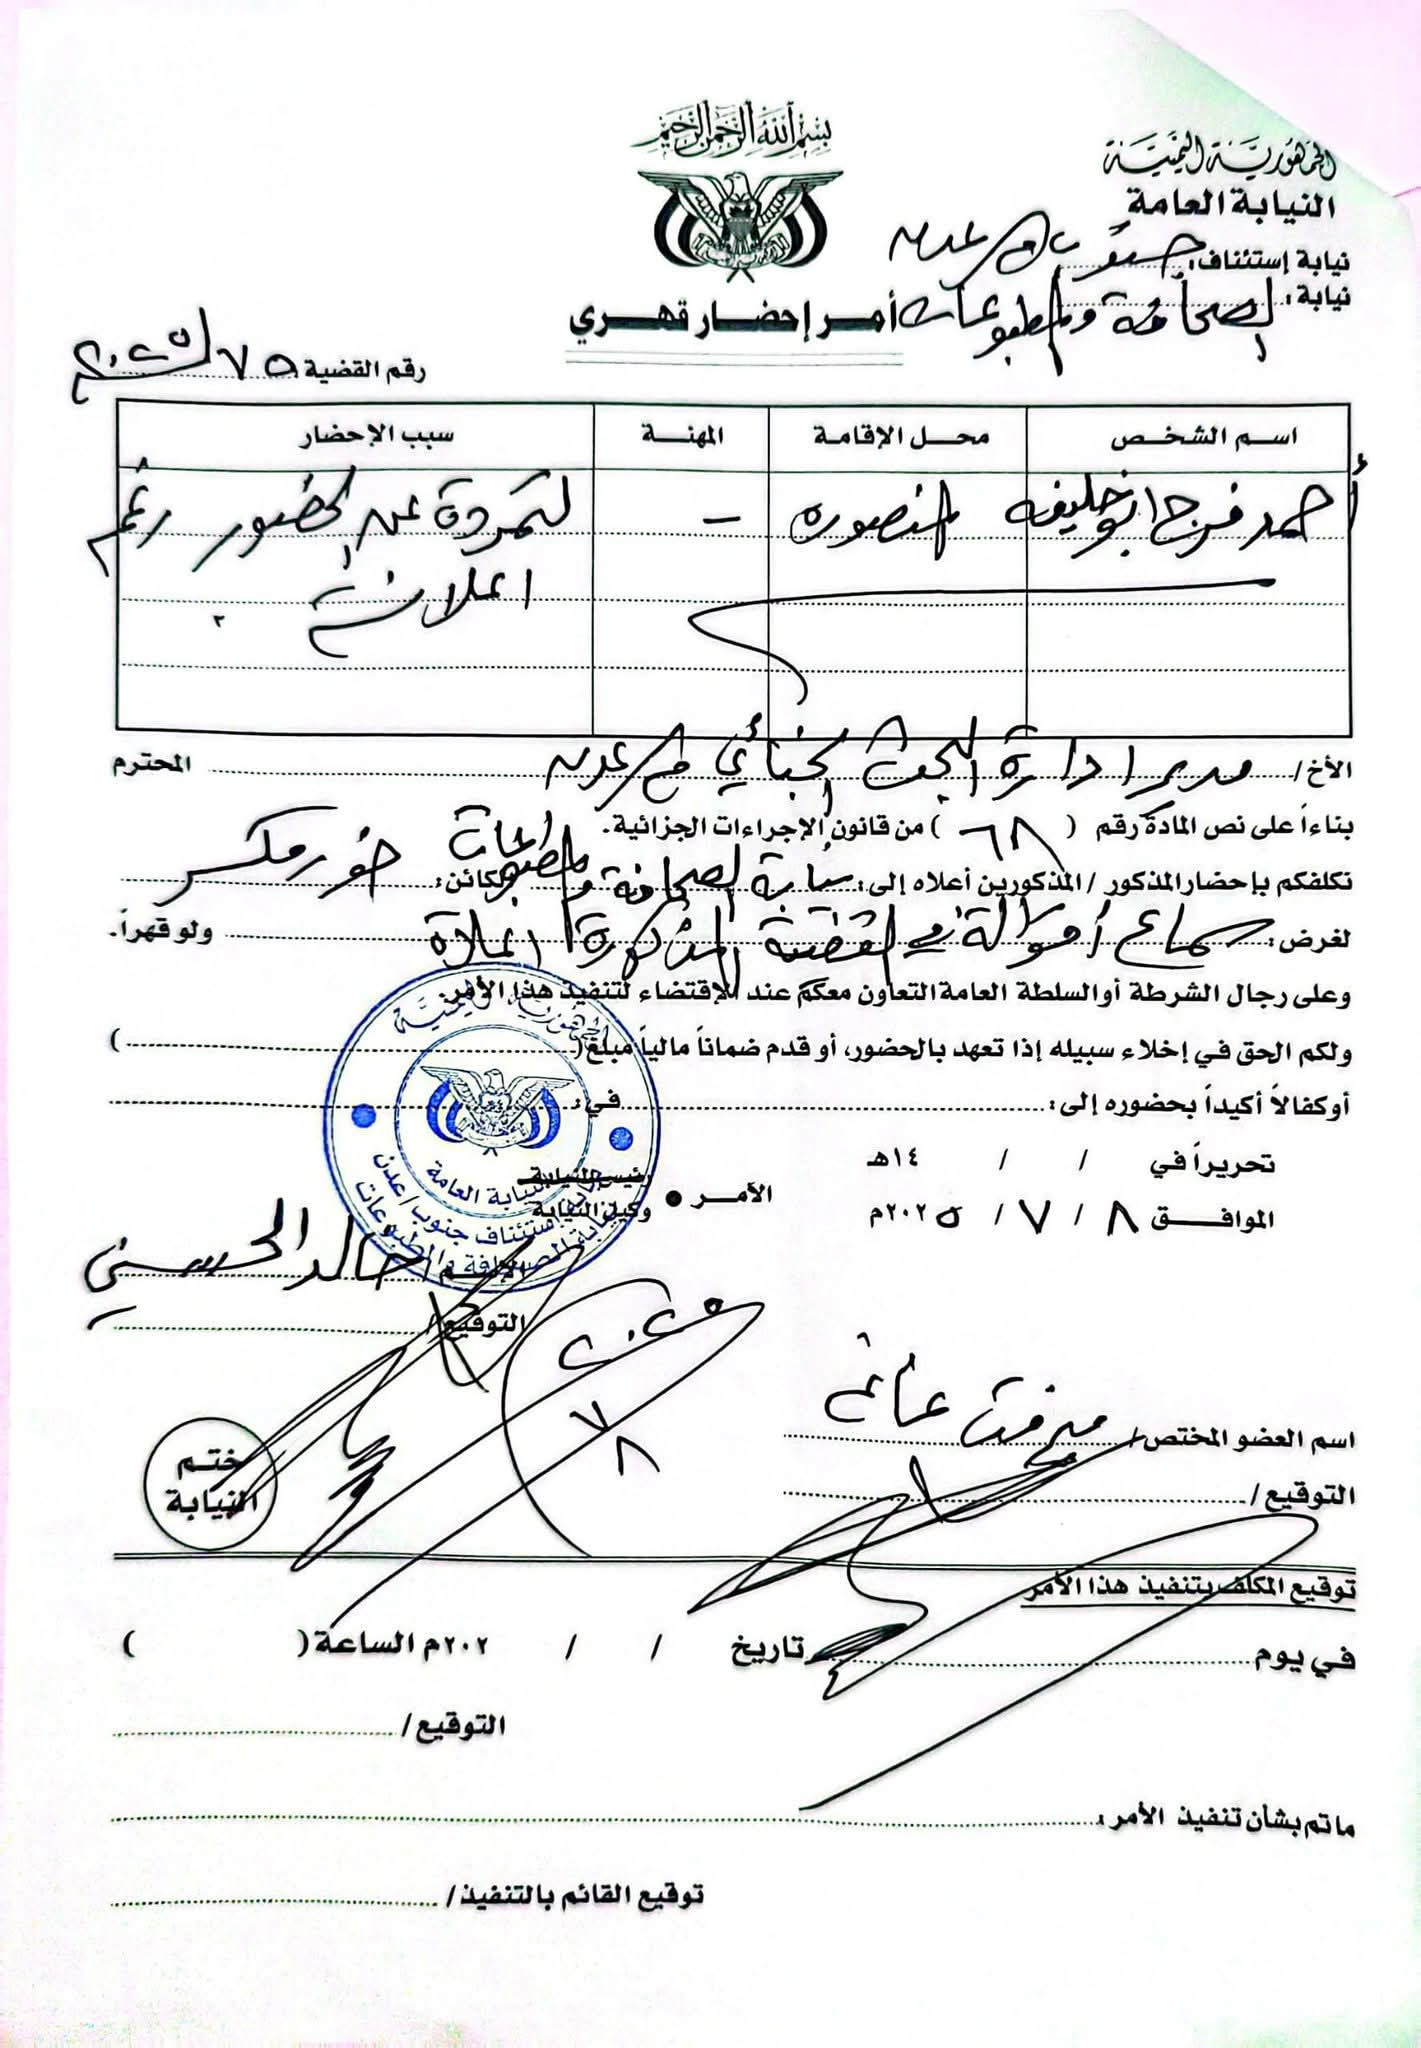 بسم الله الرحمن الرحيم
الجمهورية اليمنية
النيابة العامة
نيابة إستئناف: جنوب م/ عدن
نيابة: الصحافة والمطبوعات
أمر إحضار قهري
رقم القضية ٧٥ لسنة ٢٠٢٥م
اسم الشخص محل الإقامة المهنة سبب الإحضار
أحمد فرج ابو خليفه المنصوره - لتمردة عن الحضور رغم
اعلانه
الأخ / مدير ادارة البحث الجنائي م/ عدن المحترم
بناءاً على نص المادة رقم ( ٦٨ ) من قانون الإجراءات الجزائية.
نكلفكم بإحضار المذكور / المذكورين أعلاه إلى: نيابة الصحافة والمطبوعات الكائن: خورمكسر
لغرض: سماع أقوالة في القضية المذكورة اعلاة ولو قهراً.
وعلى رجال الشرطة أو السلطة العامة التعاون معكم عند الإقتضاء لتنفيذ هذا الأمر.
ولكم الحق في إخلاء سبيله إذا تعهد بالحضور، أو قدم ضماناً مالياً مبلغ ( )
أو كفالاً أكيداً بحضوره إلى: في:
تحريراً في / / ١٤هـ
الموافق ٨ / ٧ / ٢٠٢٥م
الأمر • رئيس النيابة
وكيل النيابة
الجمهورية اليمنية
النيابة العامة
نيابة استئناف جنوب / عدن
نيابة الصحافة والمطبوعات
الإسم / خالد الحسني
التوقيع /
٢٠٢٥
٧
٨
اسم العضو المختص / ميرفت
التوقيع /
ختم
النيابة
توقيع المكلف بتنفيذ هذا الأمر
في يوم تاريخ / / ٢٠٢م الساعة ( )
التوقيع /
ما تم بشأن تنفيذ الأمر:
توقيع القائم بالتنفيذ /